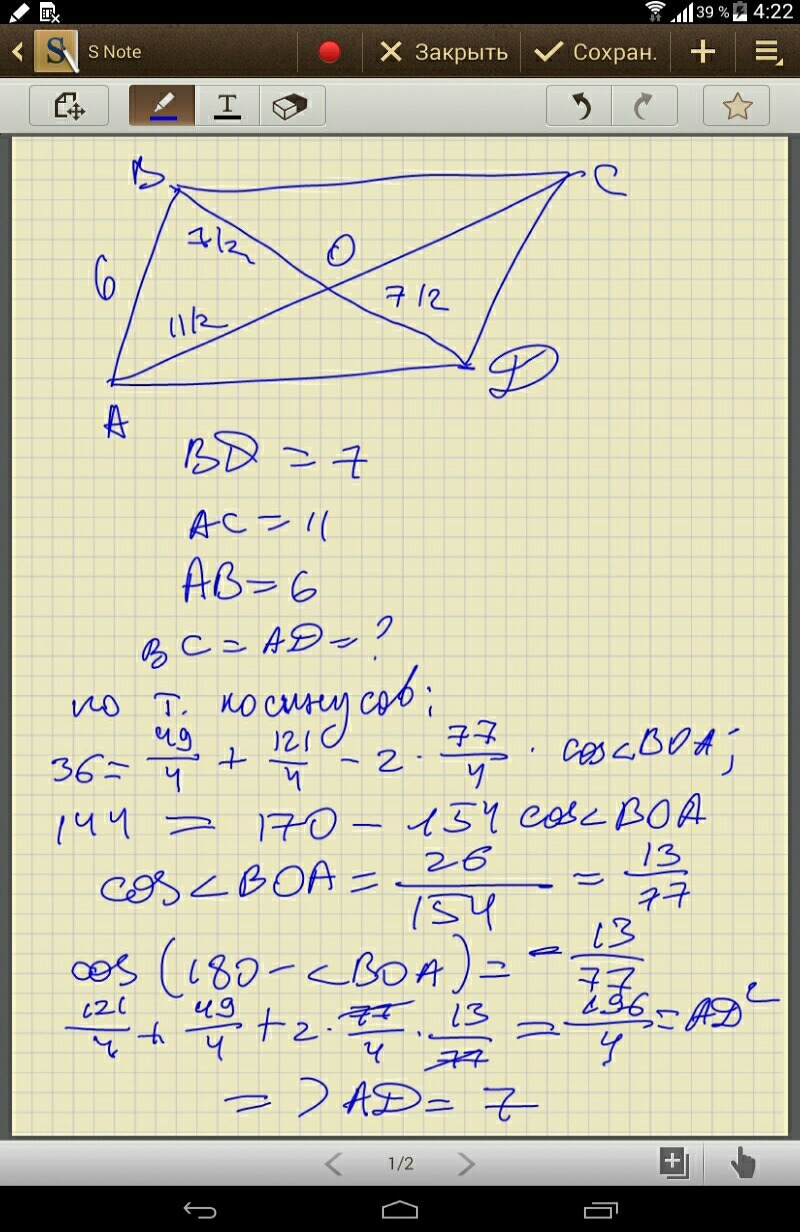 39 % 4:22
S Note Закрыть Сохран.
T
B C
7/2 O
6 7/2
11/2
A D
BD = 7
AC = 11
AB = 6
BC = AD = ?
по т. косинусов;
36 = 49/4 + 121/4 - 2 · 77/4 · cos<BOA;
144 = 170 - 154 cos<BOA
cos<BOA = 26/154 = 13/77
cos(180 - <BOA) = - 13/77
121/4 + 49/4 + 2 · 77/4 · 13/77 = 196/4 = AD²
=> AD = 7
1/2